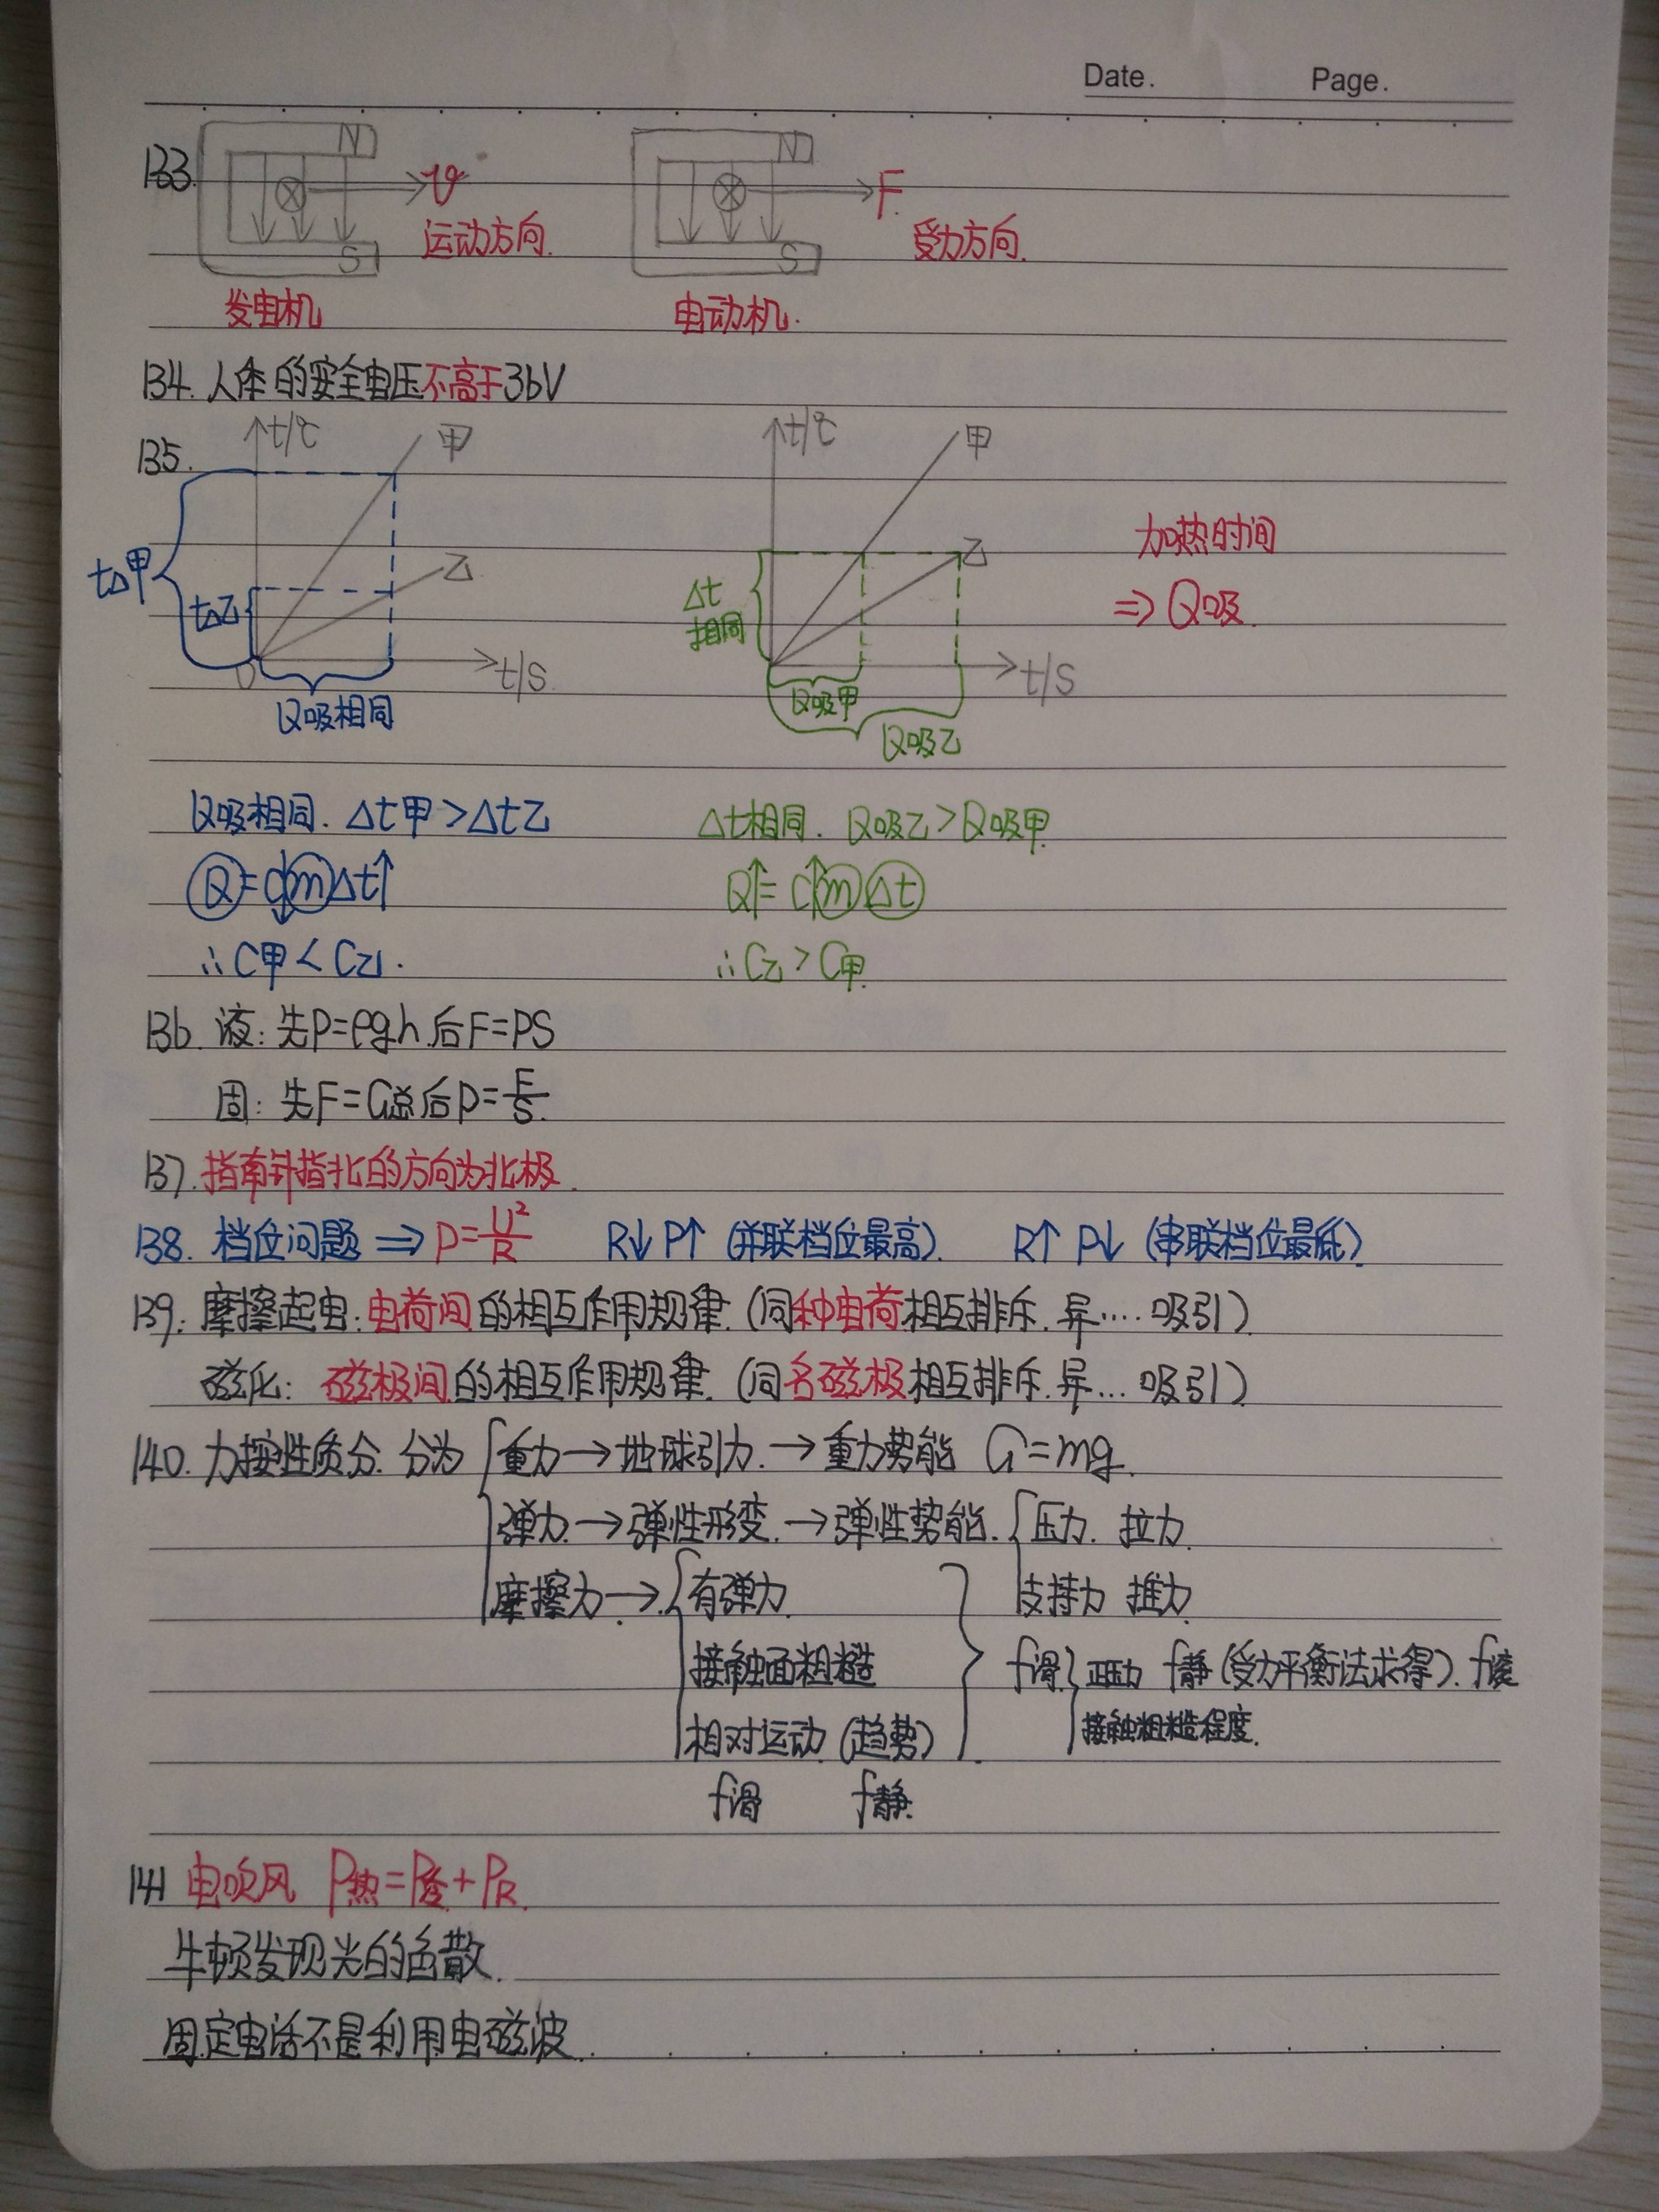 Date. Page.
133. N N
v F
运动方向. 受力方向.
S S
发电机 电动机.
134. 人体的安全电压不高于36V
135. t/℃ 甲 t/℃ 甲
t△甲 乙 乙 加热时间
t△乙 Δt相同 ⇒Q吸.
0 t/s t/s
Q吸相同 Q吸甲
Q吸乙
Q吸相同. Δt甲>Δt乙 Δt相同. Q吸乙>Q吸甲
Q=c↓mΔt↑ Q↑=c↑mΔt
∴C甲<C乙. ∴C乙>C甲.
136. 液: 先P=ρgh.后F=PS
固: 先F=G总后P=F/S.
137. 指南针指北的方向为北极.
138. 档位问题⇒P=U²/R R↓P↑(并联档位最高). R↑P↓(串联档位最低)
139. 摩擦起电:电荷间的相互作用规律.(同种电荷相互排斥.异....吸引)
磁化: 磁极间的相互作用规律.(同名磁极相互排斥.异...吸引)
140. 力按性质分.分为 重力→地球引力.→重力势能 G=mg.
弹力→弹性形变.→弹性势能. 压力. 拉力.
摩擦力→ 有弹力. 支持力 推力.
接触面粗糙 f滑 正压力 f静(受力平衡法求得).
相对运动(趋势) 接触粗糙程度.
f滑 f静.
141 电吹风 P热=P+PR.
牛顿发现光的色散.
固定电话不是利用电磁波.